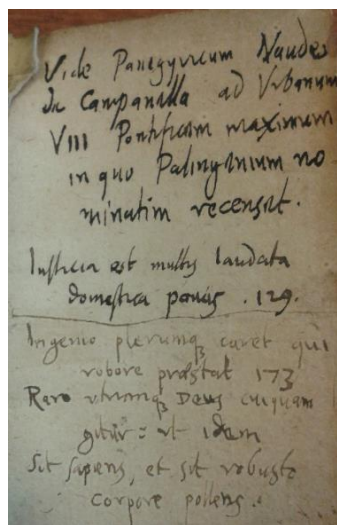 Vide Panegyricum Naudei
de Campanella ad Urbanum
VIII Pontificem maximum
in quo Palingenium no
minatim recenset.
Iustitia est multis laudata
domestica paucis . 129.
Ingenio plerumq3 caret qui
robore præstat 173
Raro utrumq3 Deus cuiquam
: ut idem
Sit sapiens, et sit robusto
corpore pollens.